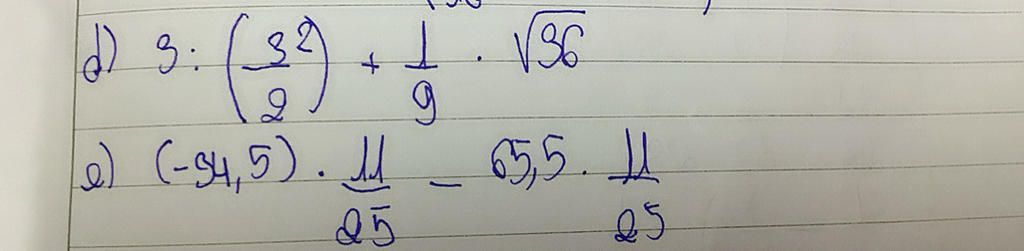 d) 3 : (3²/2) + 1/9 . √36
e) (-34,5) . 11/25 - 65,5 . 11/25